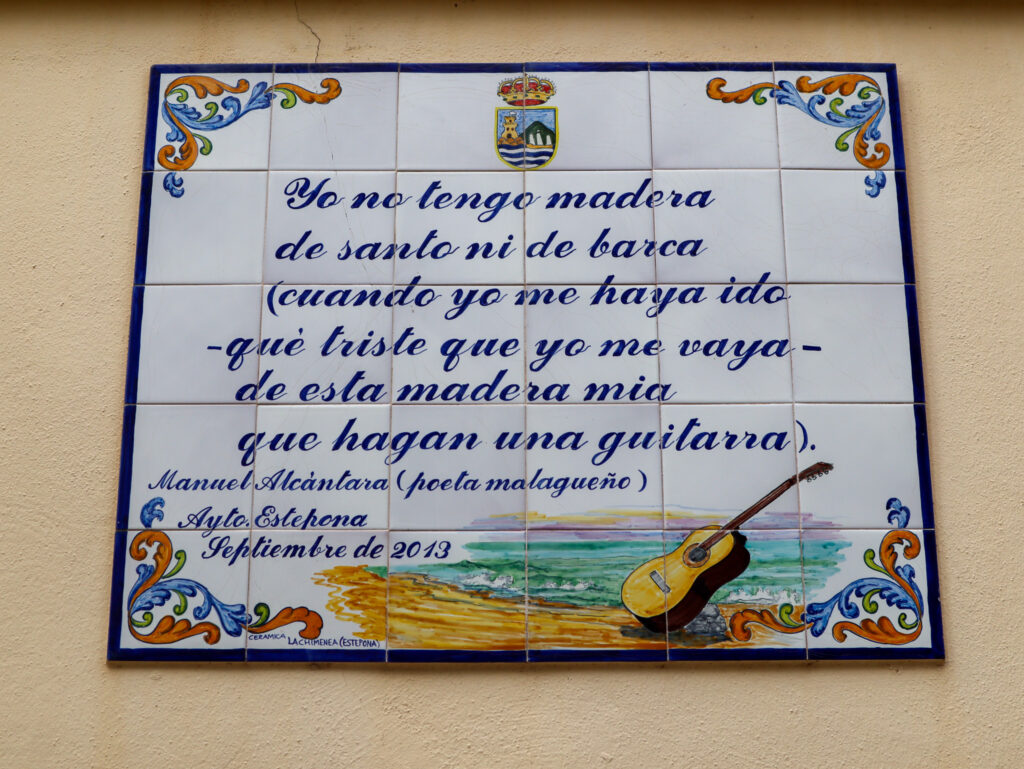 Yo no tengo madera
de santo ni de barca
(cuando yo me haya ido
-què triste que yo me vaya-
de esta madera mia
que hagan una guitarra).
Manuel Alcàntara (poeta malagueño)
Ayto. Estepona
Septiembre de 2013
CERAMICA
LA CHIMENEA (ESTEPONA)